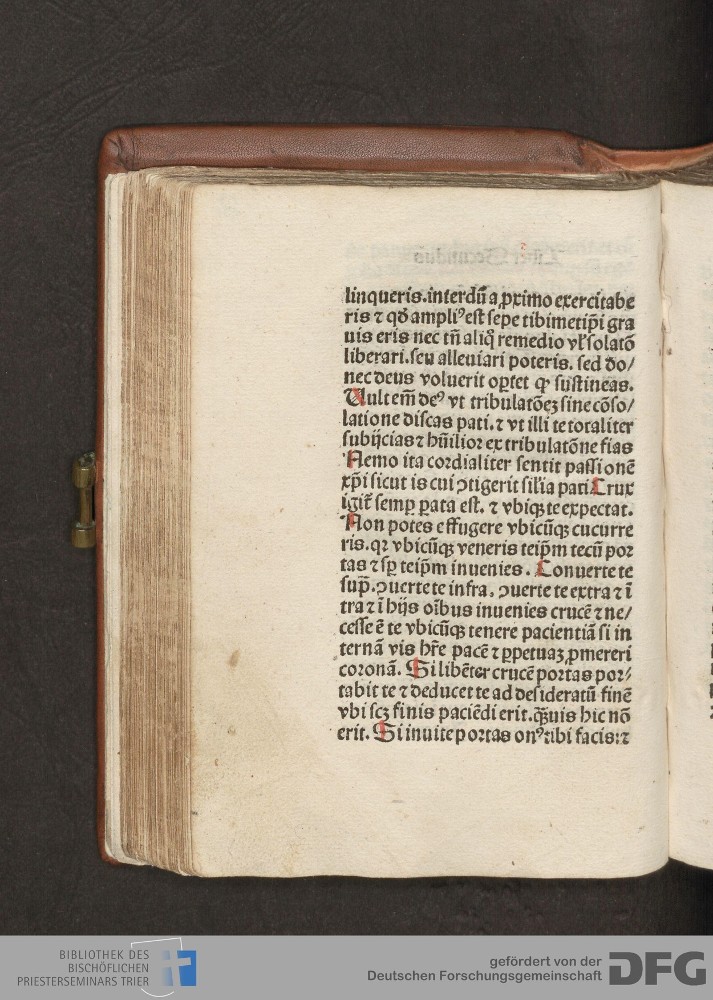 linqueris.interdū a ꝓximo exercitabe
ris ⁊ qd̄ ampliꝰ est sepe tibimetip̄i gra
uis eris nec tn̄ aliq̄ remedio vl̓ solatō
liberari.seu alleuiari poteris. sed do/
nec deus voluerit oꝑtet ꝙ sustineas.
Uult em̄ deꝰ vt tribulatōeꝫ sine cōso/
latione discas pati.⁊ vt illi te totaliter
subijcias ⁊ hūilior ex tribulatōne fias
Nemo ita cordialiter sentit passionē
xp̄i sicut is cui ꝯtigerit sil̓ia pati Crux
igit̄ semꝑ ꝑata est. ⁊ vbiqꝫ te expectat.
Non potes effugere vbicūqꝫ cucurre
ris.qꝛ vbicūqꝫ veneris teip̄m tecū por
tas ⁊ sꝑ teip̄m inuenies. Conuerte te
sup̄. ꝯuerte te infra. ꝯuerte te extra ⁊ ī
tra ⁊ ī hijs oībus inuenies crucē ⁊ ne/
cesse ē te vbicūqꝫ tenere pacientiā si in
ternā vis hr̄e pacē ⁊ ꝑpetuaꝫ ꝓmereri
coronā. Si libēter crucē portas por/
tabit te ⁊ deducet te ad desideratū finē
vbi scꝫ finis paciēdi erit.qȝuis hic nō
erit. Si inuite portas onꝰ tibi facis:⁊
BIBLIOTHEK DES
BISCHÖFLICHEN
PRIESTERSEMINARS TRIER
gefördert von der
Deutschen Forschungsgemeinschaft
DFG